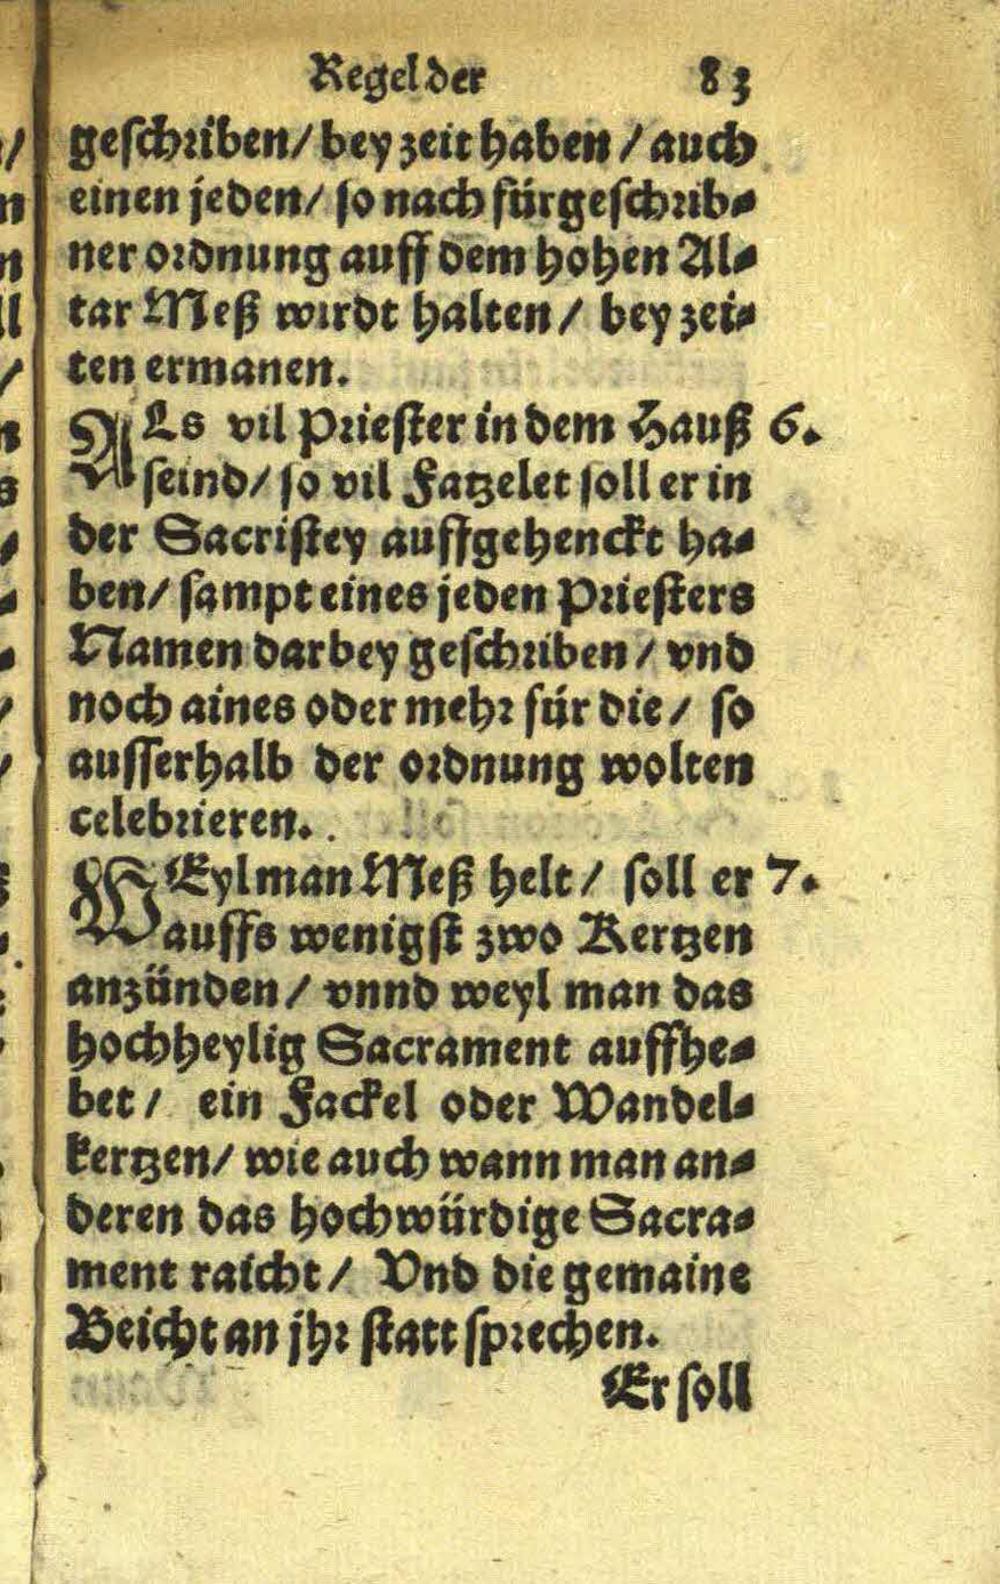 Regel der 83
geschriben/ bey zeit haben / auch
einen jeden/ so nach fürgeschrib-
ner ordnung auff dem hohen Al-
tar Meß wirdt halten / bey zei-
ten ermanen.
ALs vil Priester in dem Hauß 6.
seind/ so vil Fatzelet soll er in
der Sacristey auffgehenckt ha-
ben/ sampt eines jeden Priesters
Namen darbey geschriben / vnd
noch aines oder mehr für die / so
ausserhalb der ordnung wolten
celebrieren.
WEyl man Meß helt / soll er 7.
auffs wenigst zwo Kertzen
anzünden / vnnd weyl man das
hochheylig Sacrament auffhe-
bet / ein Fackel oder Wandel-
kertzen/ wie auch wann man an-
deren das hochwürdige Sacra-
ment raicht / Vnd die gemaine
Beicht an jhr statt sprechen.
Er soll